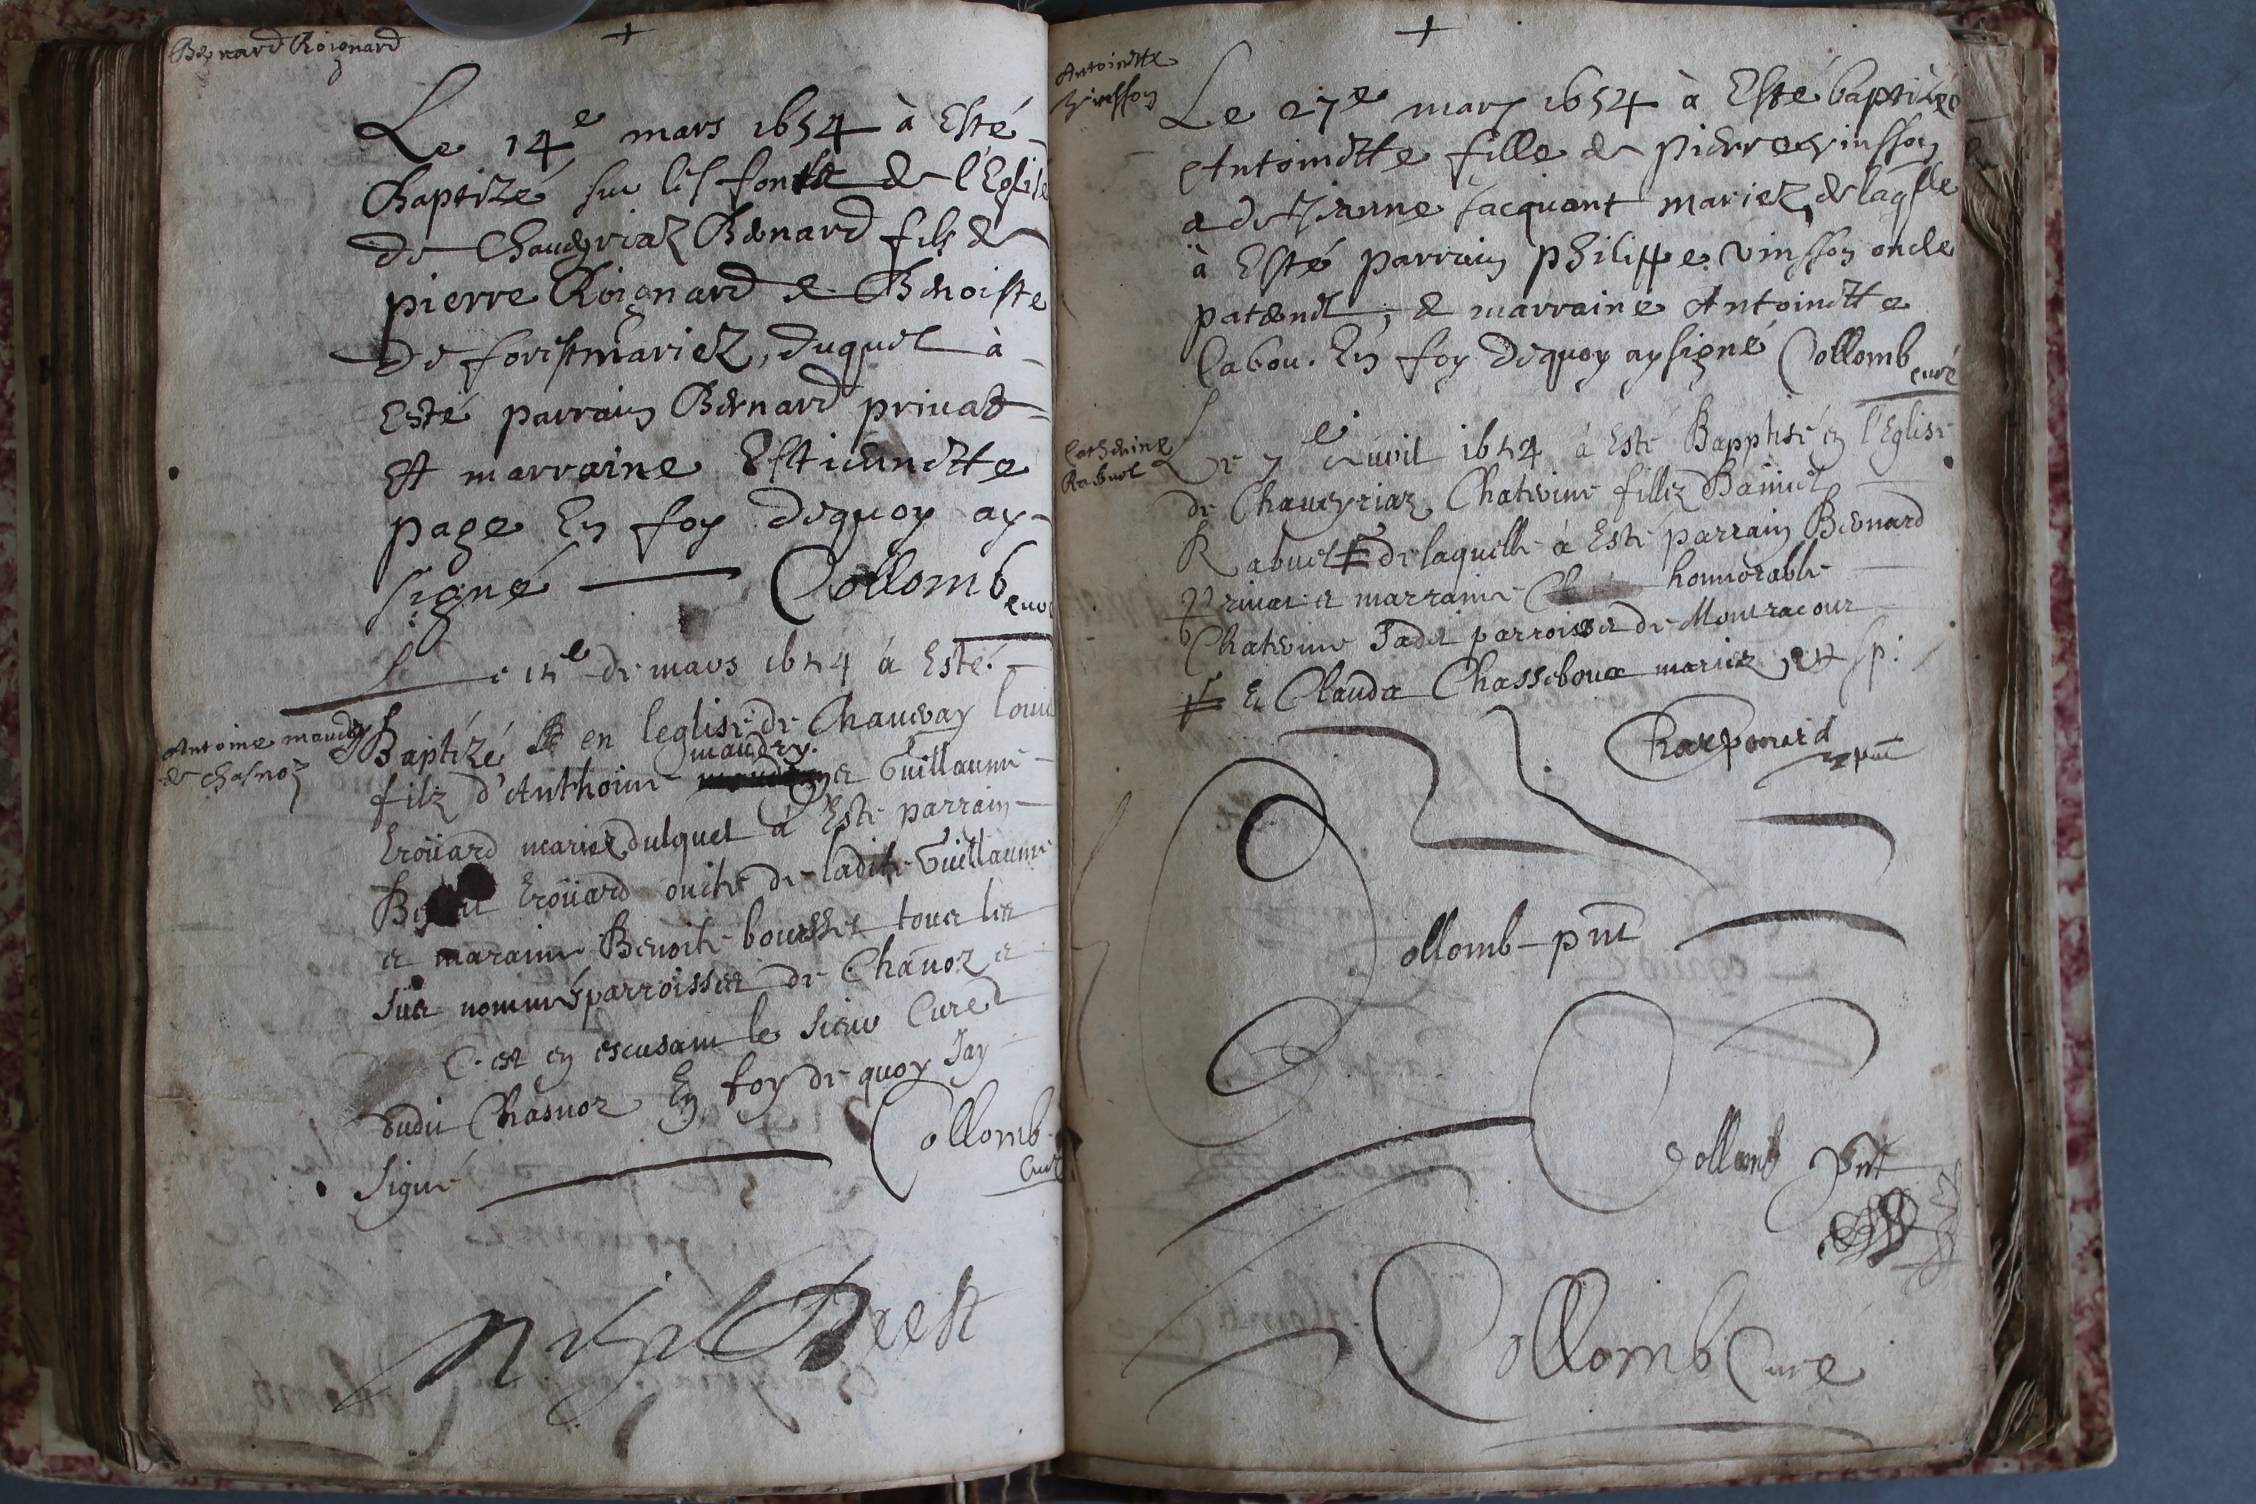 Bernard Roignard
Le 14e mars 1654 à Esté
Baptizé sur les fonts de l'Eglise
de Chaveyriaz Bernard fils de
pierre Roignard & Benoiste
de forist mariez, duquel à
Esté parrain Bernard privat
Et marraine Estiennette
page En foy dequoy ay
signé Collomb curé
Le 15e de mars 1654 á Esté
Antoine maudry
de chasnoz
Baptizé en leglise de Chaveay louis
maudry
filz d'Anthoine et Guillaume
Croüard mariez dulquel á Esté parrain
Croüard oncle de ladite Guillaume
et maraine Benoite tous les
sus nommés parroissies de Chanoz e
C. est en escusant le sieur Cured
dudit Chasnoz En foy de quoy Jay
signé Collomb
Curé
Nihil Deest
Antoinette
Vinsson
Le 27e mars 1654 à Esté baptizée
Antoinette fille de pierre vinsson
& de Jeanne Jacquant mariez, de laqlle
à Esté parrain philippe vinsson oncle
paternel, & marraine Antoinette
Cabou. En foy dequoy ay signé Collomb curé
Catherine
Rabuel
Le 7e avvil 1654 á Esté Bapptisé en l'Eglise
de Chaveyriaz Chaterine fillez Daniel
Rabuel # de laquelle á Esté parrain Bernard
Privat et marraine honnorable
Chaterine Jadet parroisse de Montracour
# Et Clauda Chasseboua mariez
Collomb pnt
Collomb pnt
Collomb Curé